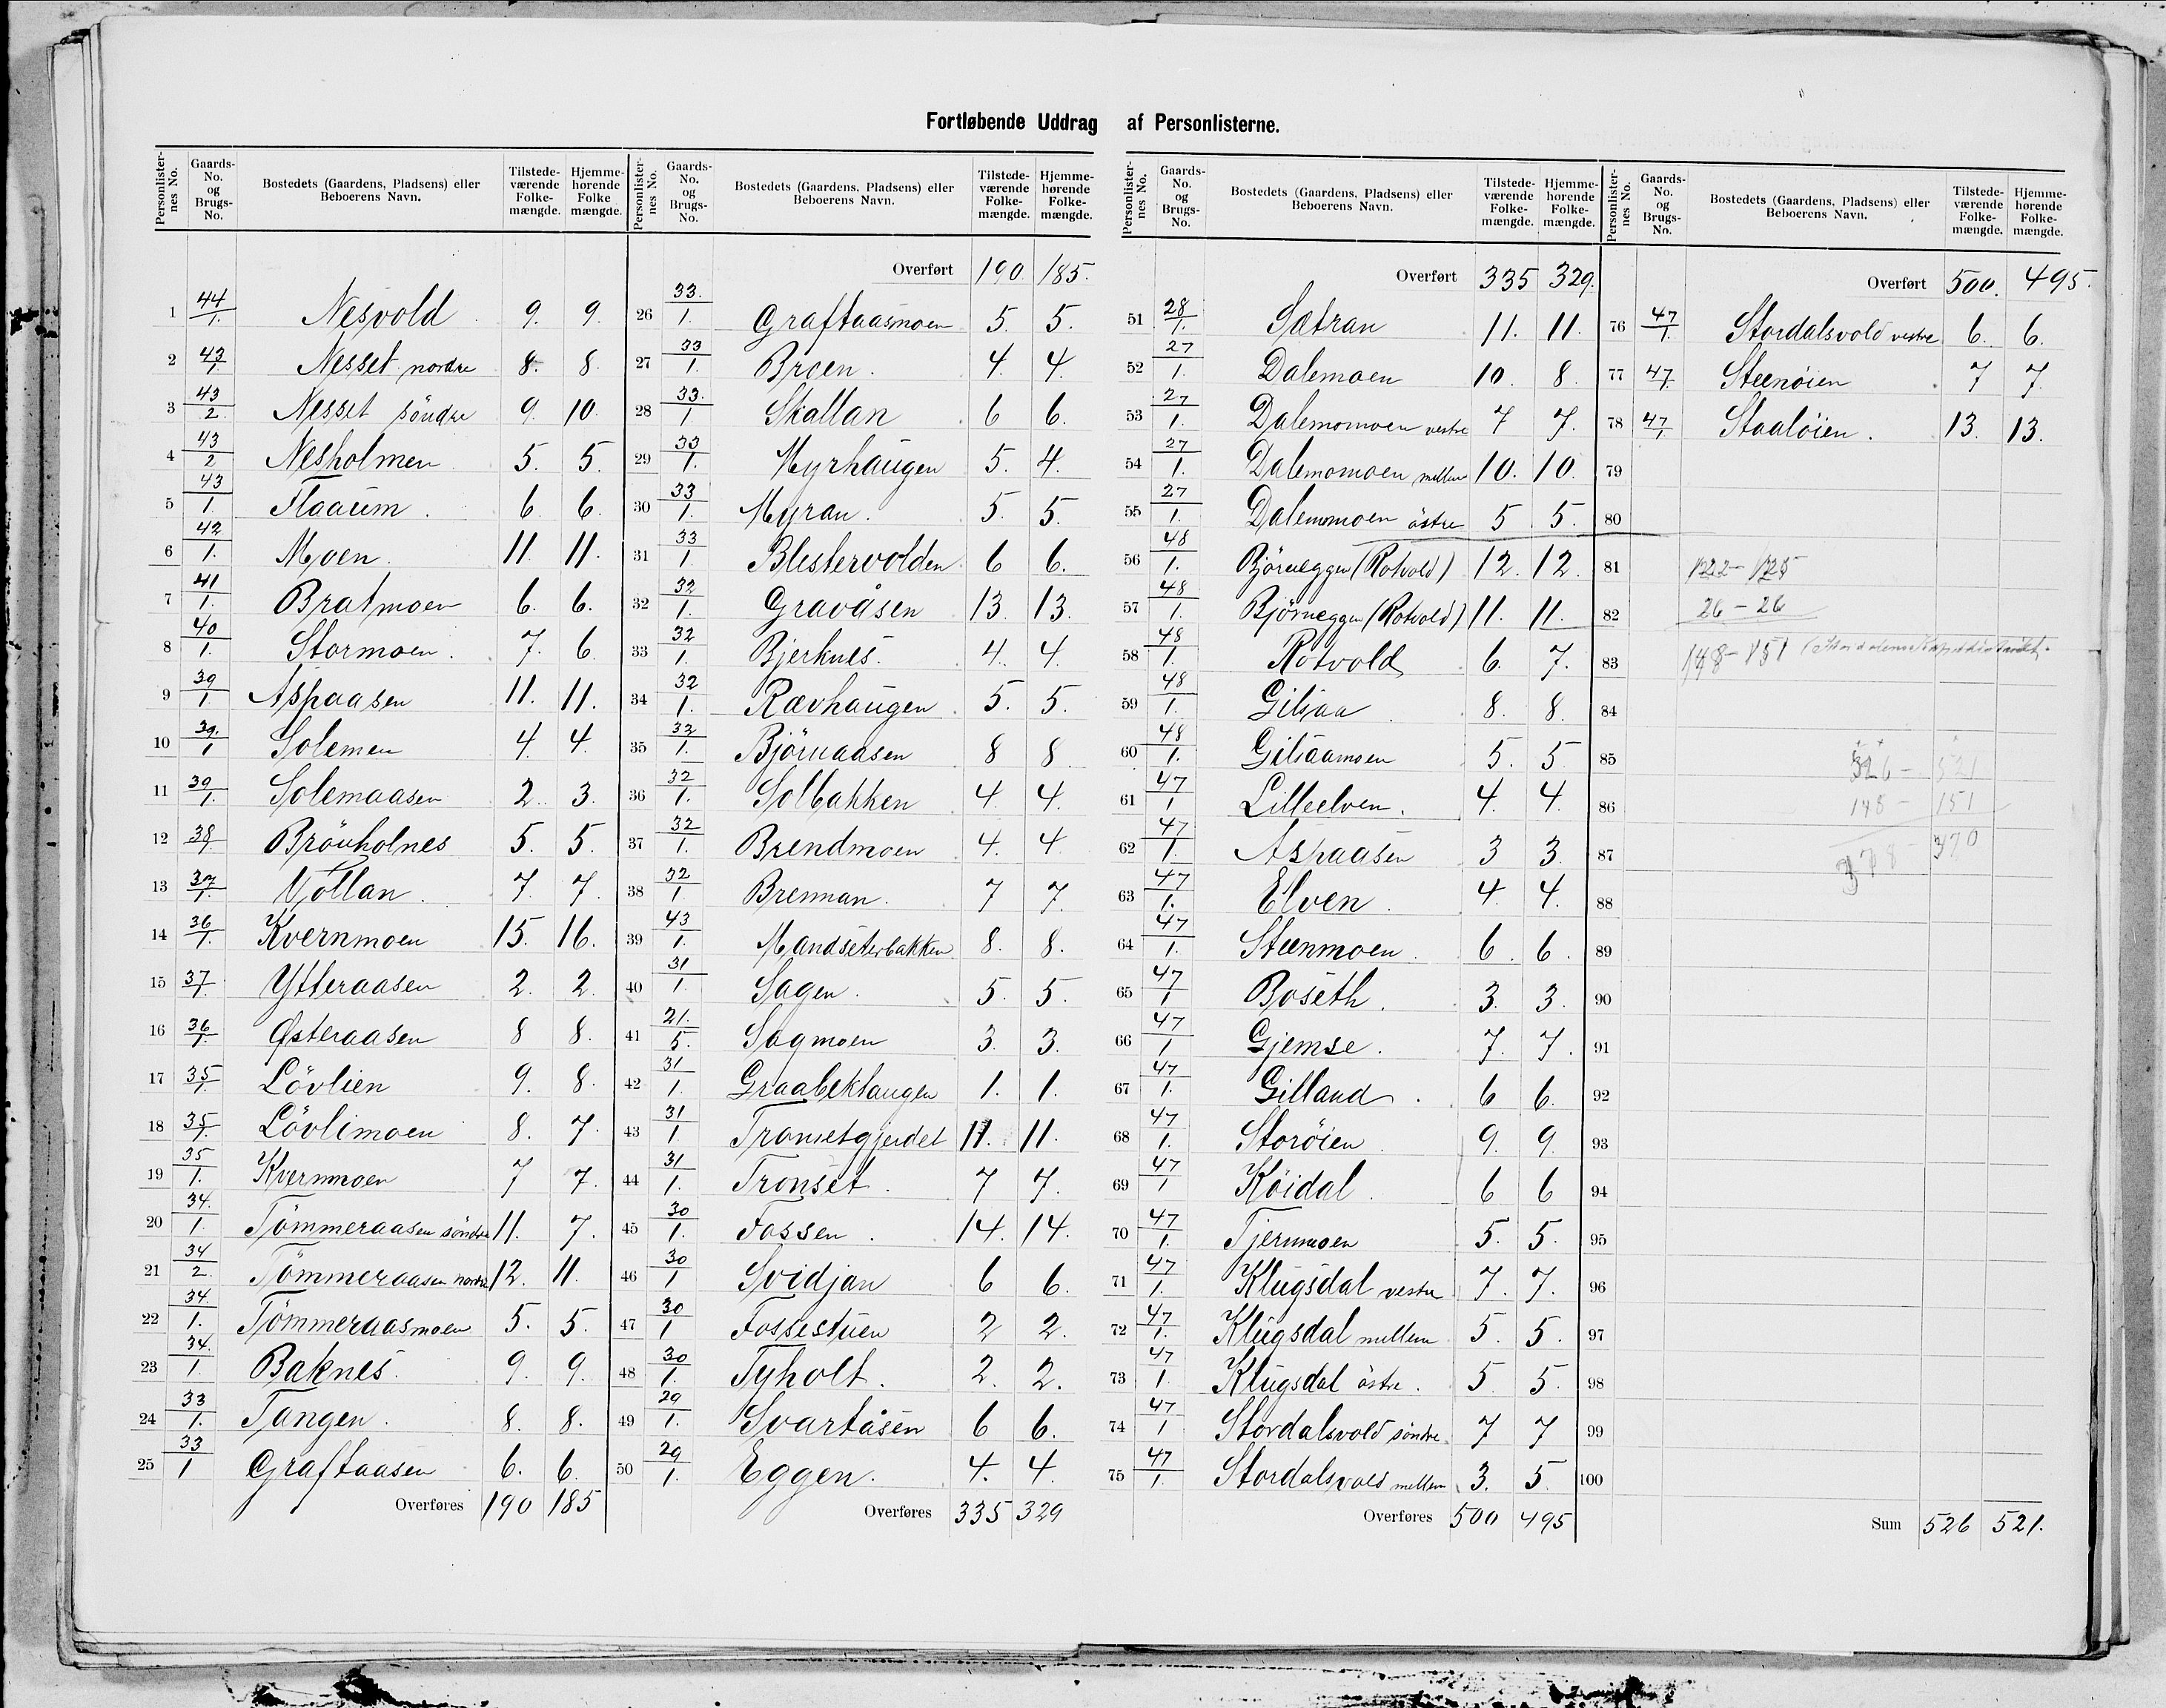 Fortløbende Uddrag af Personlisterne.
Personlisternes No. Gaards-No. og Brugs-No. Bostedets (Gaardens, Pladsens) eller Beboerens Navn. Tilstedeværende Folkemængde. Hjemmehørende Folkemængde.
1 44/1. Nesvold 9. 9.
2 43/1 Nesset nordre 8. 8.
3 43/2. Nesset söndre 9. 10.
4 43/2 Nesholmen 5. 5.
5 43/1. Flaaum 6. 6.
6 42/1. Moen. 11. 11.
7 41/1. Bratmoen 6. 6.
8 40/1. Stormoen. 7. 6.
9 39/1. Aspaasen 11. 11.
10 39./1 Solemen 4. 4.
11 39/1. Solemaasen 2. 3.
12 38/1. 5. 5.
13 37/1. Vollan. 7. 7.
14 36/1. Kvernmoen 15. 16.
15 37/1. Ytteraasen 2. 2.
16 36/1. Østeraasen 8 8.
17 35/1. Lövlien 9. 8.
18 35/1. Lövlimoen 8. 7.
19 35/1. Kvernmoen 7 7.
20 34./1. Tömmeraasen söndre 11. 7.
21 34/2. Tömmeraasen nordre 12. 11.
22 34./1. Tömmeraasmoen 5. 5.
23 34./1. Baknes. 9. 9.
24 33/1. Tangen. 8. 8.
25 33/1 Graftaasen 6. 6.
Overføres 190 185
Overført 190. 185.
26 33./1. Graftaasmoen 5. 5.
27 33/1. Broen. 4. 4.
28 33./1 Skallan 6 6.
29 33/1. Myrhaugen 5. 4.
30 33/1. Myran. 5. 5.
31 33/1. Blestervolden 6 6.
32 32/1. Gravåsen 13. 13.
33 32/1. Bjerknes. 4. 4.
34 32/1. Rævhaugen 5. 5.
35 32/1. Björnaasen 8 8.
36 32/1. Solbakken 4. 4.
37 32/1. Brendmoen 4. 4.
38 32/1 Brennan. 7 7.
39 43/1. Mandseterbakken 8. 8.
40 31/1. Sagen. 5. 5.
41 21./5. Sagmoen 3. 3.
42 31/1. Graabekhaugen 1. 1.
43 31/1. Tronsetgjerdet 11. 11.
44 31/1. Tronset. 7 7.
45 30/1. Fossen. 14. 14.
46 30/1 Svidjan 6 6.
47 30/1 Fossestuen 2 2.
48 30/1. Tyholt. 2. 2.
49 29/1. Svartåsen 6 6.
50 29/1. Eggen. 4. 4.
Overføres 335 329
Overført 335 329.
51 28/1. Sætran 11. 11.
52 27/1. Dalemoen 10. 8.
53 27/1. Dalemomoen vestre 7 7.
54 27/1. Dalemomoen mellem 10. 10.
55 27/1. Dalemomoen östre 5 5.
56 48/1. Björneggen (Rotvold) 12. 12.
57 48/1. Björneggen (Rotvold) 11. 11.
58 48/1. Rotvold 6. 7.
59 48/1. Gilsaa 8. 8.
60 48/1. Gilsaamoen 5. 5
61 47/1 Lilleelven. 4. 4.
62 47/1. Aspaasen 3 3.
63 47/1. Elven. 4. 4.
64 47/1. Steenmoen. 6. 6.
65 47/1 Boseth. 3. 3.
66 47/1 Gjemse. 7. 7.
67 47/1. Gilland. 6 6.
68 47/1. Storöien 9. 9.
69 47/1 Köidal. 6 6
70 47/1. Tjernmoen 5. 5.
71 47/1. Klugsdal vestre 7. 7.
72 47/1. Klugsdal mellem 5. 5.
73 47/1. Klugsdal östre. 5. 5.
74 47/1 Stordalsvold söndre. 7 7
75 47/1. Stordalsvold mellem 3. 5.
Overføres 500 495
Overført 500. 495.
76 47/1. Stordalsvold vestre 6. 6.
77 47/1. Steenöien 7 7.
78 47/1 Staalöien. 13. 13.
79
80
81
82 26 – 26
83 148 – 151
84
85 526 – 521
86 148 – 151
87 378 – 370
88
89
90
91
92
93
94
95
96
97
98
99
100
Sum 526 521.